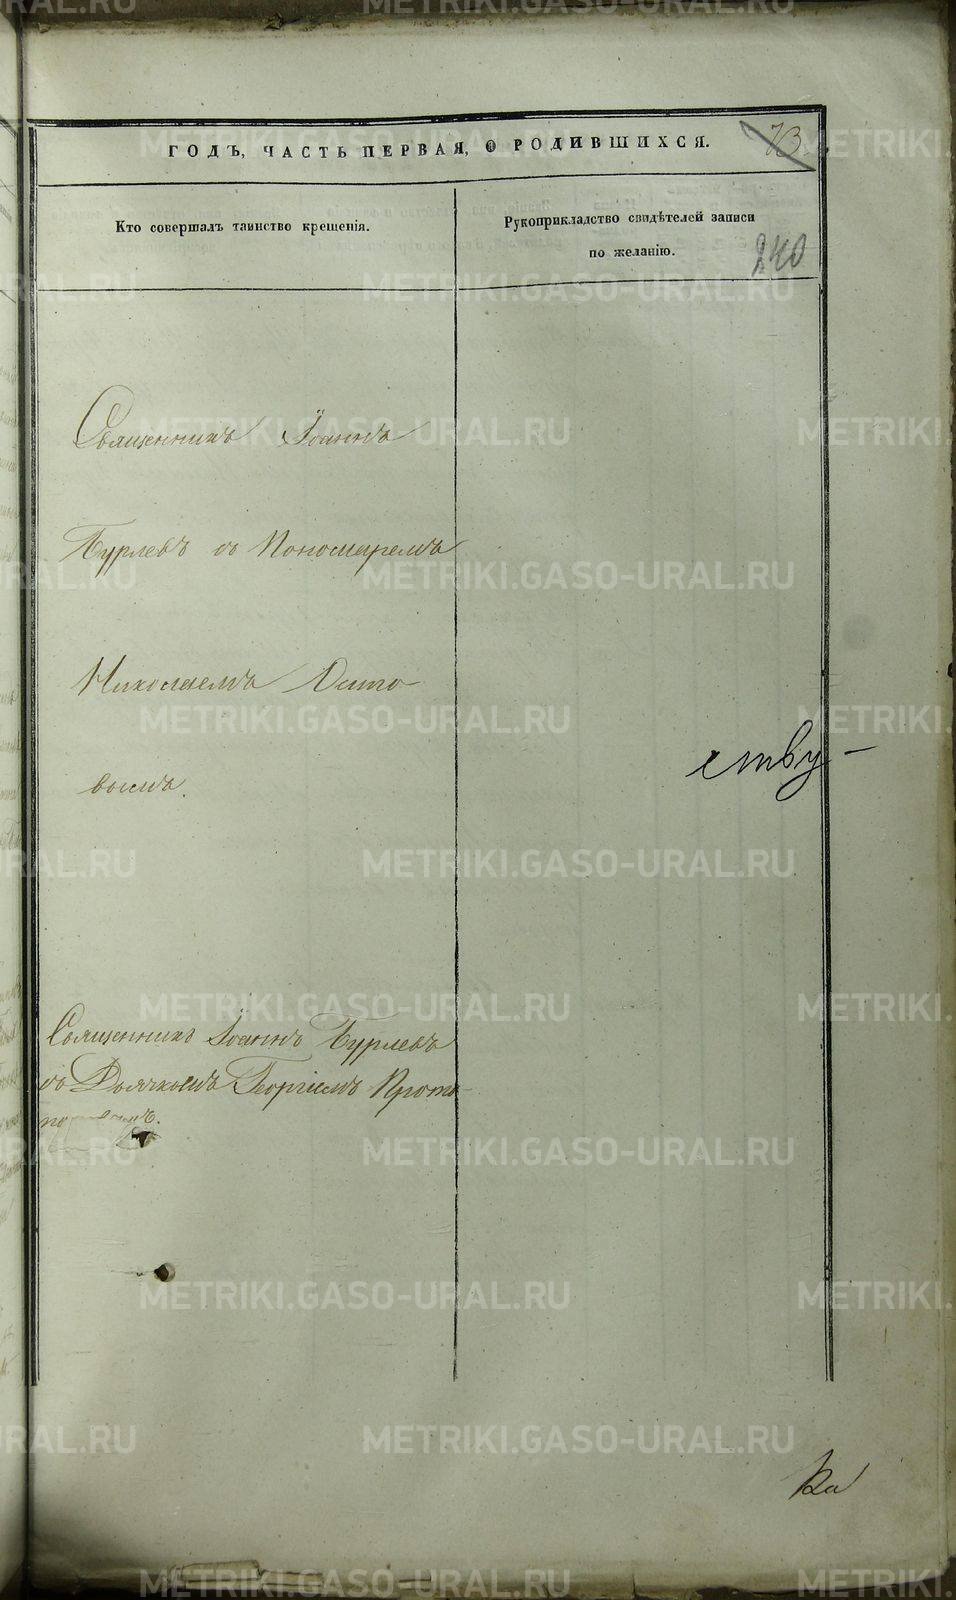 ГОДЪ, ЧАСТЬ ПЕРВАЯ, О РОДИВШИХСЯ.
73
Кто совершалъ таинство крещенія.
Рукоприкладство свидѣтелей записи
по желанію.
240
Священникъ Іоаннъ
Бурлевъ съ Пономаремъ
Николаемъ
вымъ.
ству-
Священникъ Іоаннъ Бурлевъ
съ Дьячкомъ Георгіемъ Прото-
METRIKI.GASO-URAL.RU